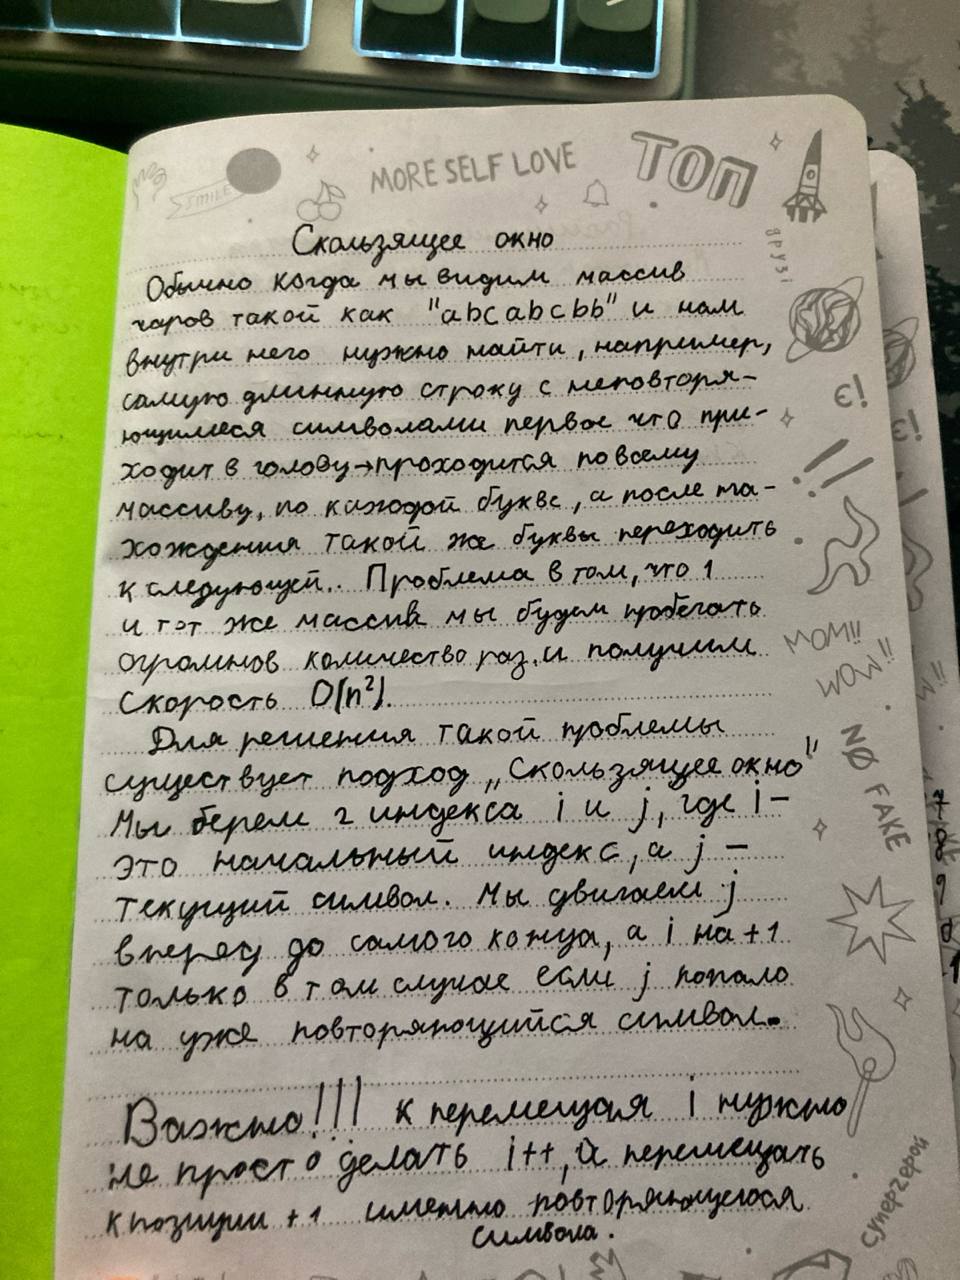 SMILE
MORE SELF LOVE
ТОП
друзі
Скользящее окно
Обычно когда мы видим массив
чаров такой как "abcabcbb" и нам
внутри него нужно найти, например,
самую длинную строку с неповторя-
ющимися символами первое что при-
ходит в голову→проходится по всему
массиву, по каждой букве, а после на-
хождения такой же буквы переходить
к следующей.. Проблема в том, что 1
и тот же массив мы будем пробегать
огромное количество раз, и получим
Скорость O(n²).
Для решения такой проблемы
существует подход „Скользящее окно"
Мы берем 2 индекса i и j, где i –
это начальный индекс, а j –
текущий символ. Мы двигаем j
вперед до самого конца, а i на +1
только в том случае если j попало
на уже повторяющийся символ.
Важно!!! К перемещая i нужно
не просто делать i++, а перемещать
к позиции +1 именно повторяющегося
символа.
є!
є!
WOW!!
WOW!!
NØ FAKE
супергерой
7
8
9